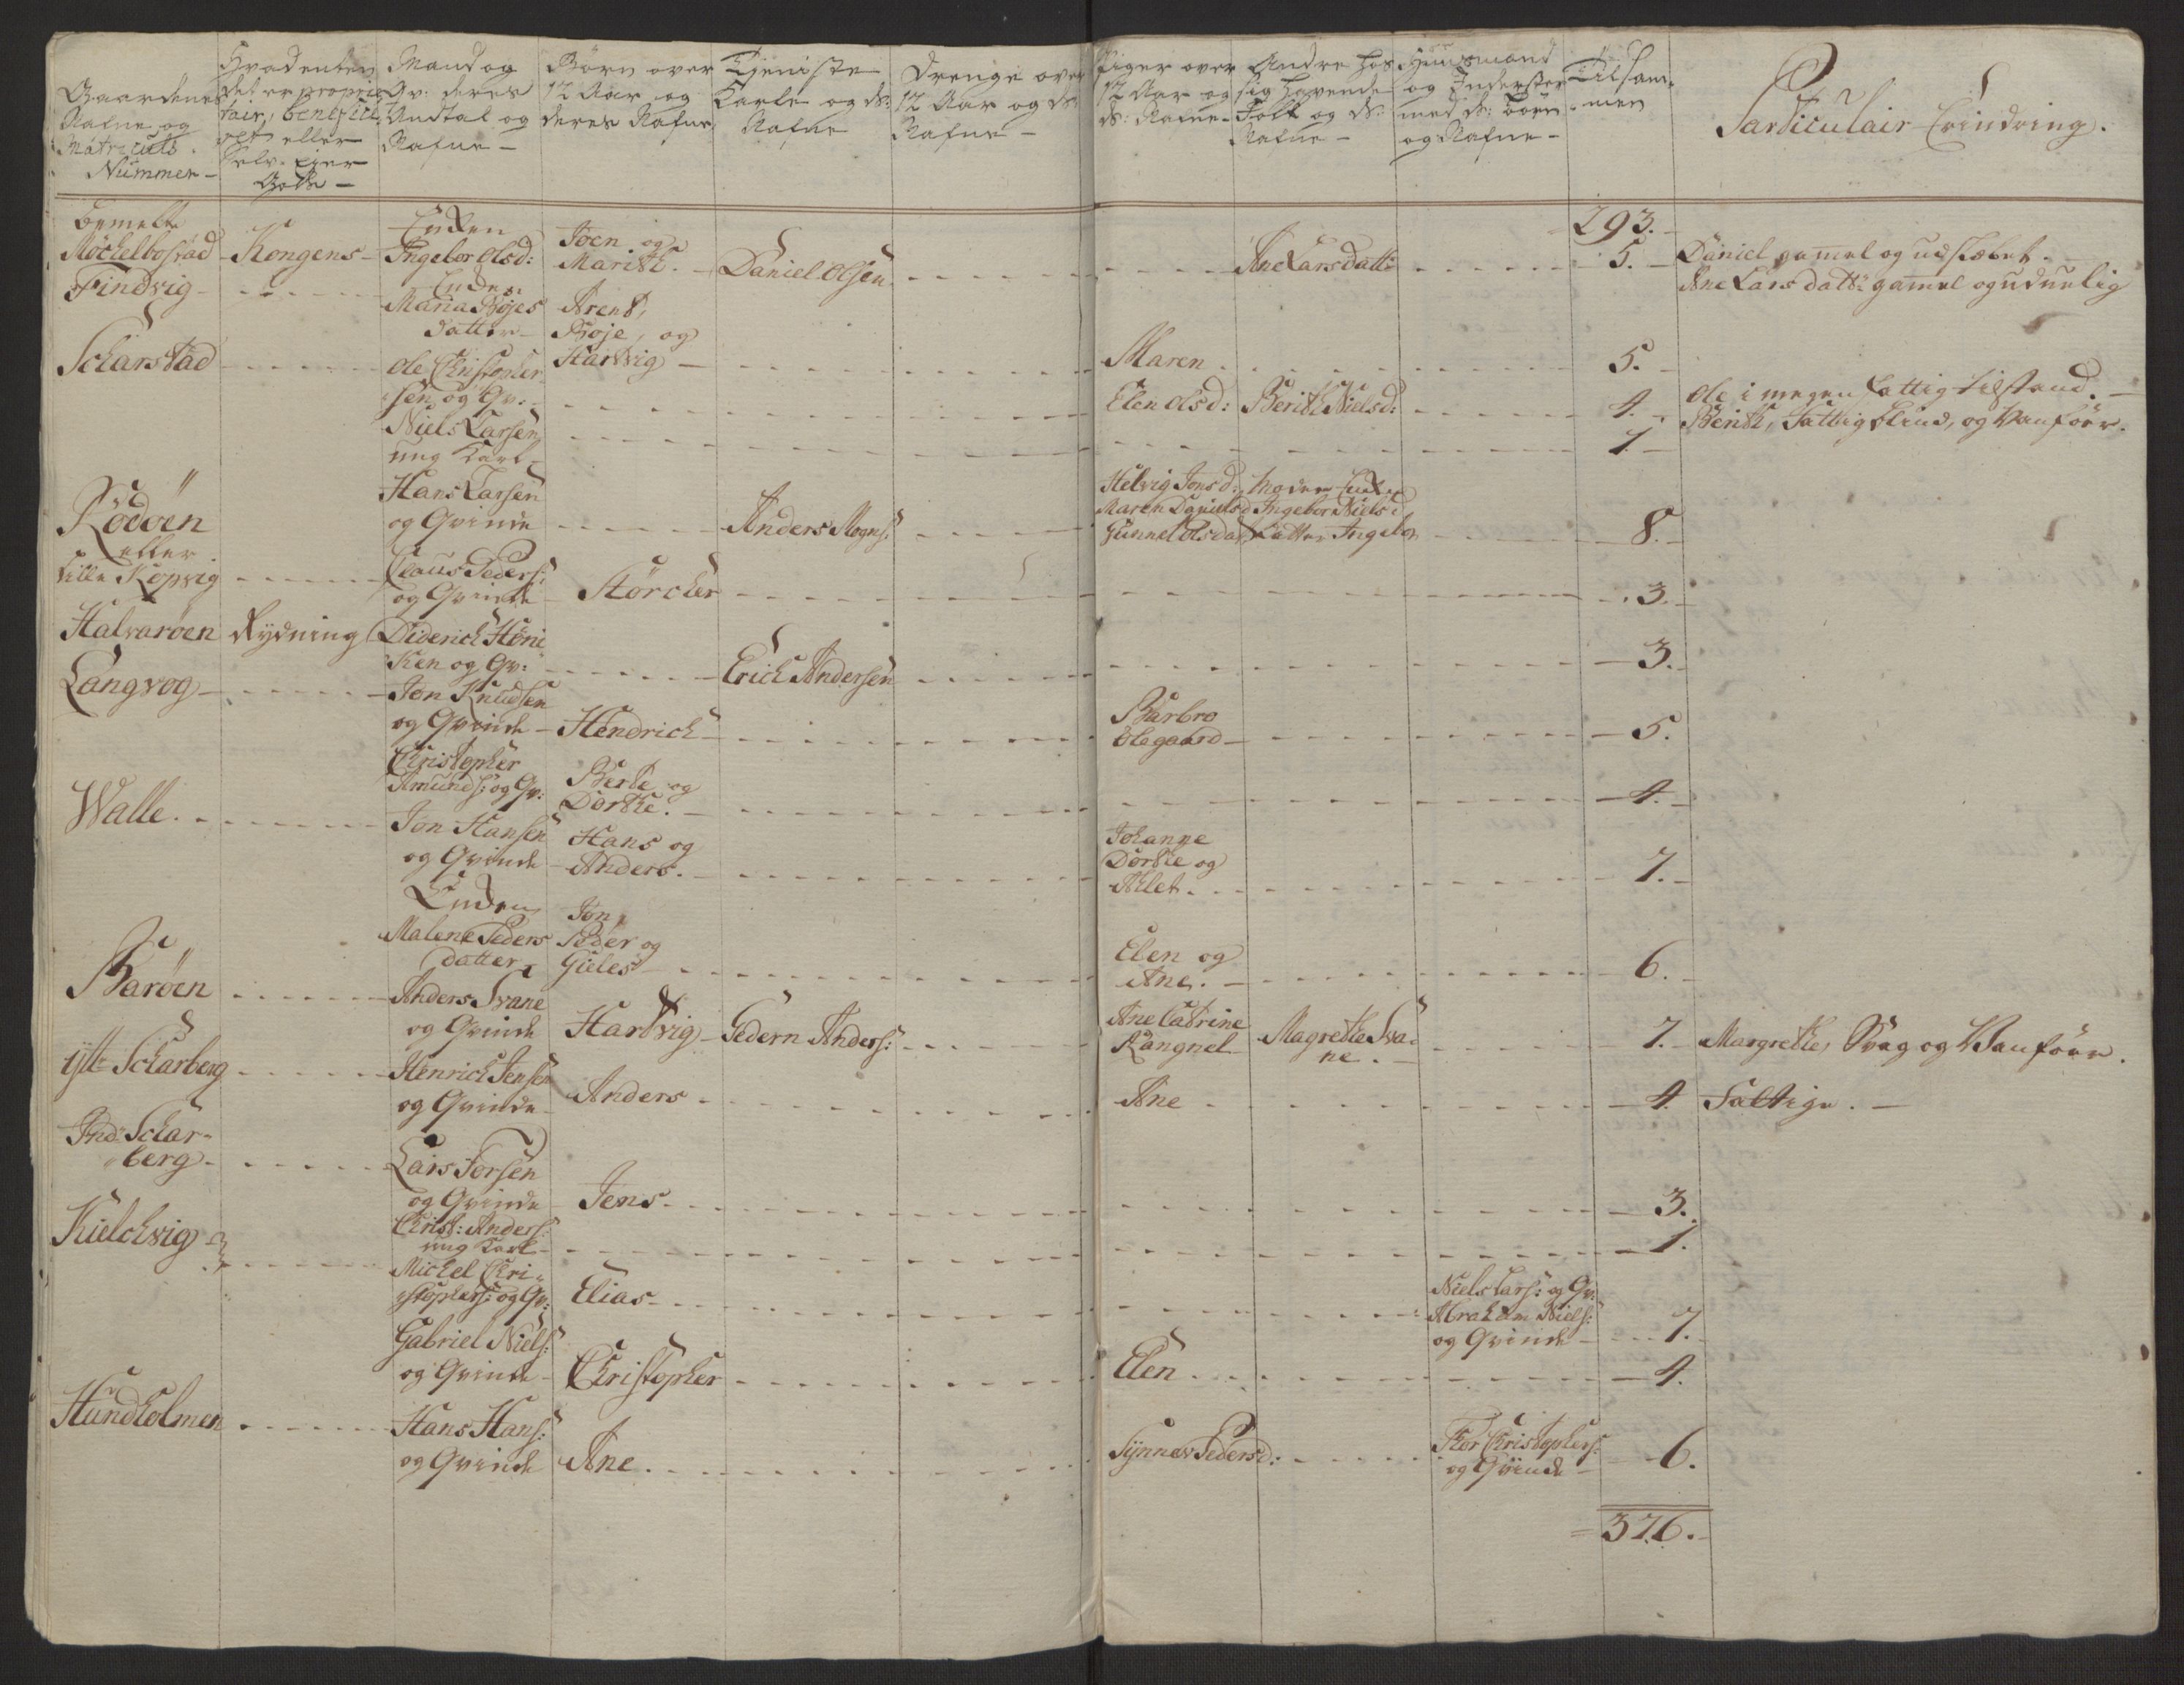 Gaardenes Nafne og Matriculs Nummer -
Hvad enten det er proprietair, beneficit, eller Selv-Ejer Gods -
Mand og Qv: deres Andtal og Nafne -
Børn over 12 Aar og deres Nafne
Tjeniste Karle og ds: Nafne
Drenge over 12 Aar og ds: Nafne -
Piger over 12 Aar og ds: Nafne -
Andre hos sig havende Folk og ds: Nafne -
Huusmænd og Inderster med ds: børn og Nafne -
Tilsammen
Particulair Erindring.
293.
bemelte Möckelbostad - Kongens - Enken Ingebor Olsd: Joen og Marith. - Daniel Olsen - Ane Larsdatt: 5. - Daniel gamel og udslæbet. -
Ane Lars datt: gamel og uduelig
Findvig - Enken Maria Böjes datter - Arent, Böje, og Hartvig - Maren. 5. -
Scharstad - Ole Christophersen og Qv: - Elen Olsd: Berith Nielsd: 4. - Ole i megen fattig tilstand. -
Berith, fattig blind, og Vanföer.
Niels Larsen ung Karl - 1. -
Rödöen eller
lille Kopvig
Hans Larsen og Qvinde - Anders Mogns: Helvig Jonsd: Maren Danielsd Gunnel Olsdat Moder Enken Ingebor Nielsd Datter Ingebor 8. -
Claus Peders: og Qvinde - Störcher 3. -
Halvaröen Rydning Diderich Höniken og Qv: - Erich Andersen - 3. -
Langvog - Jon Knudsen og Qvinde - Hendrich - Barbro Olegaard - 5.
Christopher Amunds: og Qv: Berte og Dorthe. - 4. -
Walle. - Jon Hansen og Qvinde - Hans og Anders. - Johanne Dorthe og Ahlet. 7. -
Enken Malene Peders datter, Jon, Peder og Gieles - Elen og Ane. - 6. -
Baröen - Anders Svane og Qvinde Hartvig - Pedern Anders: Ane Catrine Rangnel - Magrethe Svane. - 7. - Margrethe, Svag og Vanföer.
ytt- Scharberg - Henrich Jensen og Qvinde - Anders - Ane - 4. Fattige. -
Ind: Scharberg - Lars Forsen og Qvinde Jens - 3.
Kielchvig - Christ: Anders: ung Karl - 1.
Michel Christophers: og Qv: Elias - Niels Lars: og Qv: Abraham Niels: og Qvinde - 7. -
Gabriel Niels: og Qvinde - Christopher - Elen - 4.
Hundholmen - Hans Hans: og Qvinde Ane. - Synnev Pedersd: Thor Christophers: og Qvinde - 6.
= 376. -